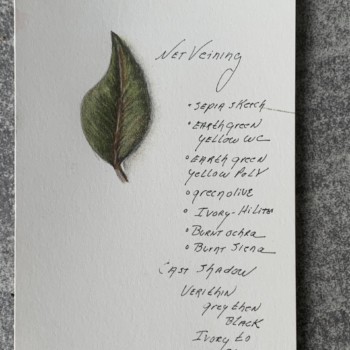 Net Veining
• Sepia sketch
• Earth green
yellow WC
• Earth green
yellow Poly
• green olive
• Ivory-Hilites
• Burnt ochra
• Burnt Siena
Cast Shadow
Verithin
grey then
Black
Ivory to